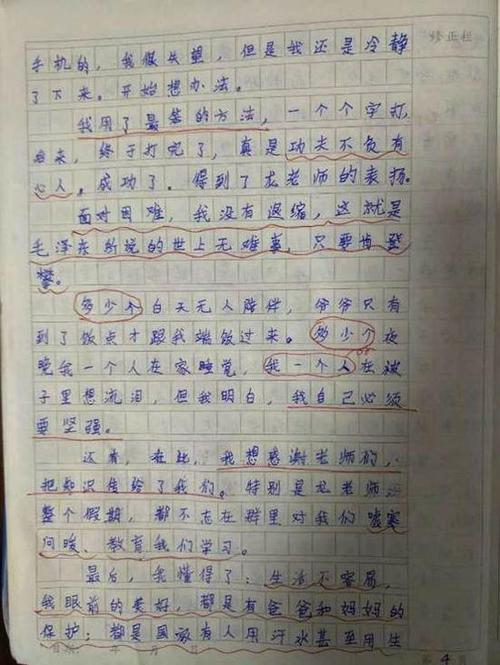 修正栏
手机的，我很失望，但是我还是冷静
了下来。开始想办法。
我用了最笨的方法，一个个字打
出来，终于打完了，真是功夫不负有
心人。成功了。得到了龙老师的表扬。
面对困难，我没有退缩，这就是
毛泽东所说的世上无难事，只要肯登
攀。
多少个白天无人陪伴，爷爷只有
到了饭点才跟我端饭过来。多少个夜
晚我一个人在家睡觉，我一个人在被
子里想流泪，但我明白，我自己必须
要坚强。
还有，在此，我想感谢老师们，
把知识传给了我们。特别是龙老师，
整个假期，都不忘在群里对我们嘘寒
问暖、教育我们学习。
最后，我懂得了：生活不容易，
我眼前的美好，都是有爸爸和妈妈的
保护；都是国家有人用汗水甚至用生
年 月 日
第 4 页